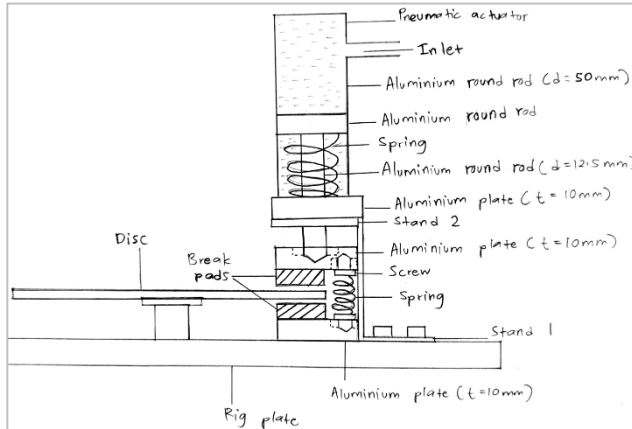 Pneumatic actuator
Inlet
Aluminium round rod (d=50mm)
Aluminium round rod
Spring
Aluminium round rod (d=12.5mm)
Aluminium plate (t=10mm)
Stand 2
Disc
Aluminium plate (t=10mm)
Break
pads
Screw
Spring
Stand 1
Aluminium plate (t=10mm)
Rig plate